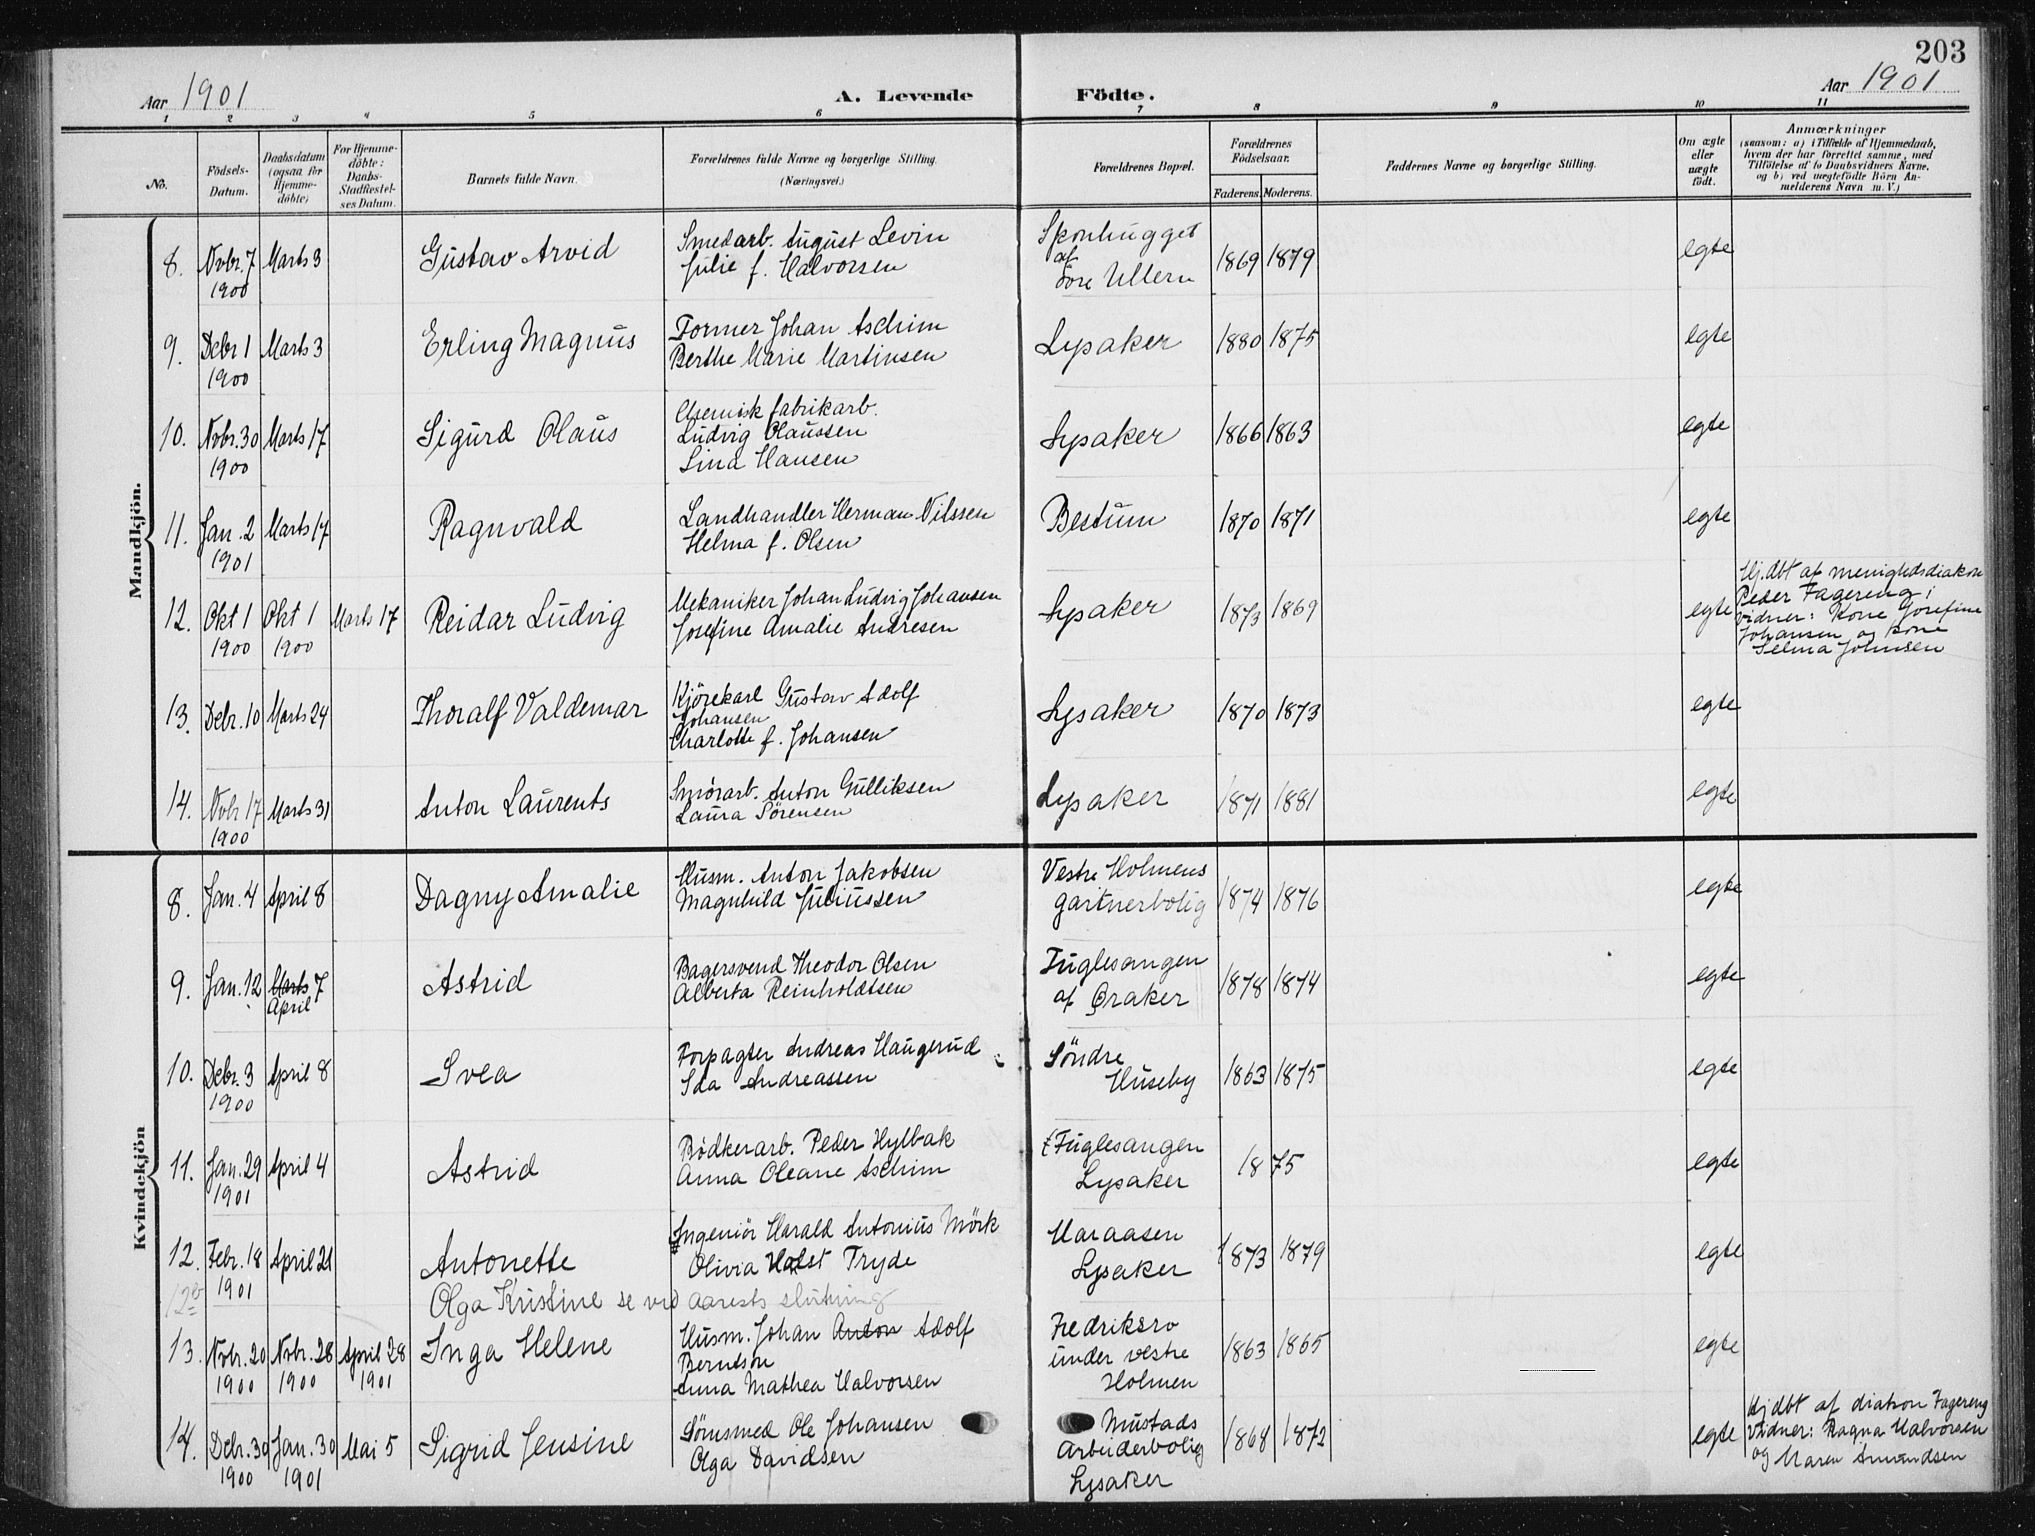 203
Aar 1901
A. Levende Födte.
Aar 1901
1 2 3 4 5 6 7 8 9 10 11
No.
Födsels-
Datum.
Daabsdatum
(ogsaa for
Hjemme-
döbte)
For Hjemme-
döbte:
Daabs-
Stadfæstel-
ses Datum.
Barnets fulde Navn.
Forældrenes fulde Navne og borgerlige Stilling.
(Næringsvei.)
Forældrenes Bopæl.
Forældrenes
Födselsaar.
Faderens. Moderens.
Faddernes Navne og borgerlige Stilling.
Om ægte
eller
uægte
födt.
Anmærkninger
(saasom: a) i Tilfælde af Hjemmedaab,
hvem der har forrettet samme, med
Tilföielse af to Daabsvidners Navne.
og b) ved uægtefödte Börn An-
melderens Navn m. V.)
Mandkjön.
8. Novbr. 7 1900 Marts 3
Gustav Arvid
Smedarb. August Levin
Julie f. Halvorsen
Sponhugget
af
Söre Ullern
1869 1879 egte
9. Debr 1 1900 Marts 3
Erling Magnus
Former Johan Aschim
Berthe Marie Martinsen
Lysaker 1880 1875 egte
10. Novbr. 30 1900 Marts 17
Sigurd Olaus
Chemisk fabrikarb.
Ludvig Olaussen
Lina Hansen
Lysaker 1866 1863 egte
11. Jan. 2 1901 Marts 17
Ragnvald
Landhandler Herman Nilssen
Helma f. Olsen
Bestum 1870 1871 egte
12. Okt 1 1900 Okt 1 1900 Marts 17
Reidar Ludvig
Mekaniker Johan Ludvig Johansen
Josefine Amalie Andresen
Lysaker 1873 1869 egte
Hj.dbt af menighedsdiakon
Peder Fagereng;
vidner: Kone Josefine
Johansen og kone
Selma Johnsen
13. Debr. 10 Marts 24
Thoralf Valdemar
Kjörekarl Gustav Adolf
Johansen
Charlotte f. Johansen
Lysaker 1870 1873 egte
14. Novbr 17 1900 Marts 31
Anton Laurents
Smörarb. Anton Gulliksen
Laura Sörensen
Lysaker 1871 1881 egte
Kvindekjön
8. Jan. 4 April 8
Dagny Amalie
Husm. Anton Jakobsen
Magnhild Juliussen
Vestre Holmens
gartnerbolig
1874 1876 egte
9. Jan. 12 Marts 7
April
Astrid
Bagersvend Theodor Olsen
Alberta Reinholdtsen
Fuglesangen
af Øraker
1878 1874 egte
10. Debr. 3 1900 April 8
Svea
Forpagter Andreas Haugerud
Ida Andreassen
Söndre
Huseby
1863 1875 egte
11. Jan. 29 1901 April 4
Astrid
Bødkerarb. Peder Hylbak
Anna Oleane Aschim
Fuglesangen
Lysaker
1875 egte
12. Febr. 18 1901 April 21
Antonette
Ingeniör Harald Antonius Mörk
Olivia Holst Tryde
Maraasen
Lysaker
1873 1879 egte
12b Olga Kristine se ved aarets slutning
13. Novbr. 20 1900 Novbr. 28 1900 April 28 1901
Inga Helene
Husm. Johan Anton Adolf
Berntsen
Anna Mathea Halvorsen
Fredriksro
under vestre
Holmen
1863 1865 egte
14. Debr. 30 1900 Jan. 30 1901 Mai 5
Sigrid Jensine
Sömsmed Ole Johansen
Olga Davidsen
Mustads
Arbeiderbolig
Lysaker
1868 1872 egte
Hjdbt af diakon Fagereng
Vidner: Ragna Halvorsen
og Maren Amundsen